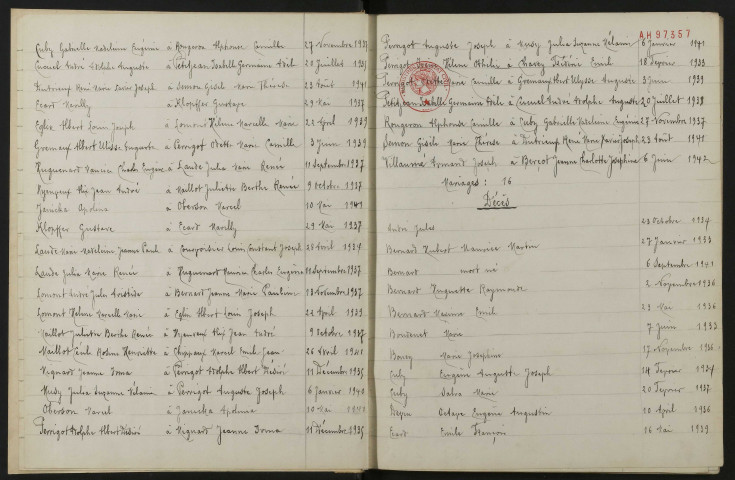 Cuby Gabrielle Madeleine Eugénie à Rongeron Alphonse Camille 27 Novembre 1937
Cuenel André Adolphe Auguste à Petitjean Isabelle Germaine Adèle 20 Juillet 1938
René Marie Xavier Joseph à Semon Gisèle Marie Thérèse 23 Août 1941
Ecard Marilly à Klopffer Gustave 29 Mai 1937
Eglin Albert Louis Joseph à Lomont Hélène Marcelle Marie 22 Avril 1939
Gremaux Albert Ulysse Auguste à Perrigot Odette Marie Camille 3 Juin 1939
Huguenard Maurice Charles Eugène à Laude Julia Marie Renée 11 Septembre 1937
Alix Jean André à Maillot Juliette Berthe Renée 9 Octobre 1937
Janicka Apolonia à Oberson Marcel 10 Mai 1941
Klopffer Gustave à Ecard Marilly 29 Mai 1937
Laude Marie Madeleine Jeanne Paule à Louis Constant Joseph 28 Avril 1934
Laude Julia Marie Renée à Huguenard Maurice Charles Eugène 11 Septembre 1937
Lomont André Jules Aristide à Bernard Jeanne Marie Pauline 13 Novembre 1937
Lomont Hélène Marcelle Marie à Eglin Albert Louis Joseph 22 Avril 1939
Maillot Juliette Berthe Renée à Alix Jean André 9 Octobre 1937
Maillot Henriette à Marcel Emile Jean 26 Avril 1941
Mignard Jeanne Irma à Perrigot Adolphe Albert Désiré 11 Décembre 1935
Musy Julia Suzanne Mélanie à Perrigot Auguste Joseph 6 Janvier 1940
Oberson Marcel à Janicka Apolonia 10 Mai 1941
Perrigot Adolphe Albert Désiré à Mignard Jeanne Irma 11 Décembre 1935
AH97357
Perrigot Auguste Joseph à Musy Julia Suzanne Mélanie 6 Janvier 1941
Perrigot Hélène à Chavey Frédéric Emile 18 Février 1933
Perrigot Odette Marie Camille à Gremaux Albert Ulysse Auguste 3 Juin 1939
Petitjean Isabelle Germaine Adèle à Cuenel André Adolphe Auguste 20 Juillet 1938
Rongeron Alphonse Camille à Cuby Gabrielle Madeleine Eugénie 27 Novembre 1937
Semon Gisèle Marie Thérèse à René Marie Xavier Joseph 23 Août 1941
Villaume Armand Joseph à Bercot Jeanne Charlotte Joséphine 6 Juin 1942
Mariages : 16
Décès
André Jules 23 Octobre 1934
Bernard Hubert Maurice Martin 27 Janvier 1933
Bernard mort né 6 Septembre 1941
Bernard Huguette Raymonde 2 Novembre 1936
Bernard Maxime Emile 29 Mai 1936
Marie 7 Juin 1933
Marie Joséphine 17 Novembre 1936
Cuby Eugène Auguste Joseph 14 Février 1934
Cuby Marie 20 Février 1937
Octave Eugène Augustin 10 Avril 1936
Ecard Emile François 16 Mai 1939